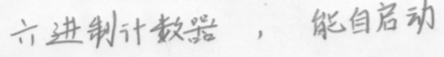 六进制计数器，能自启动